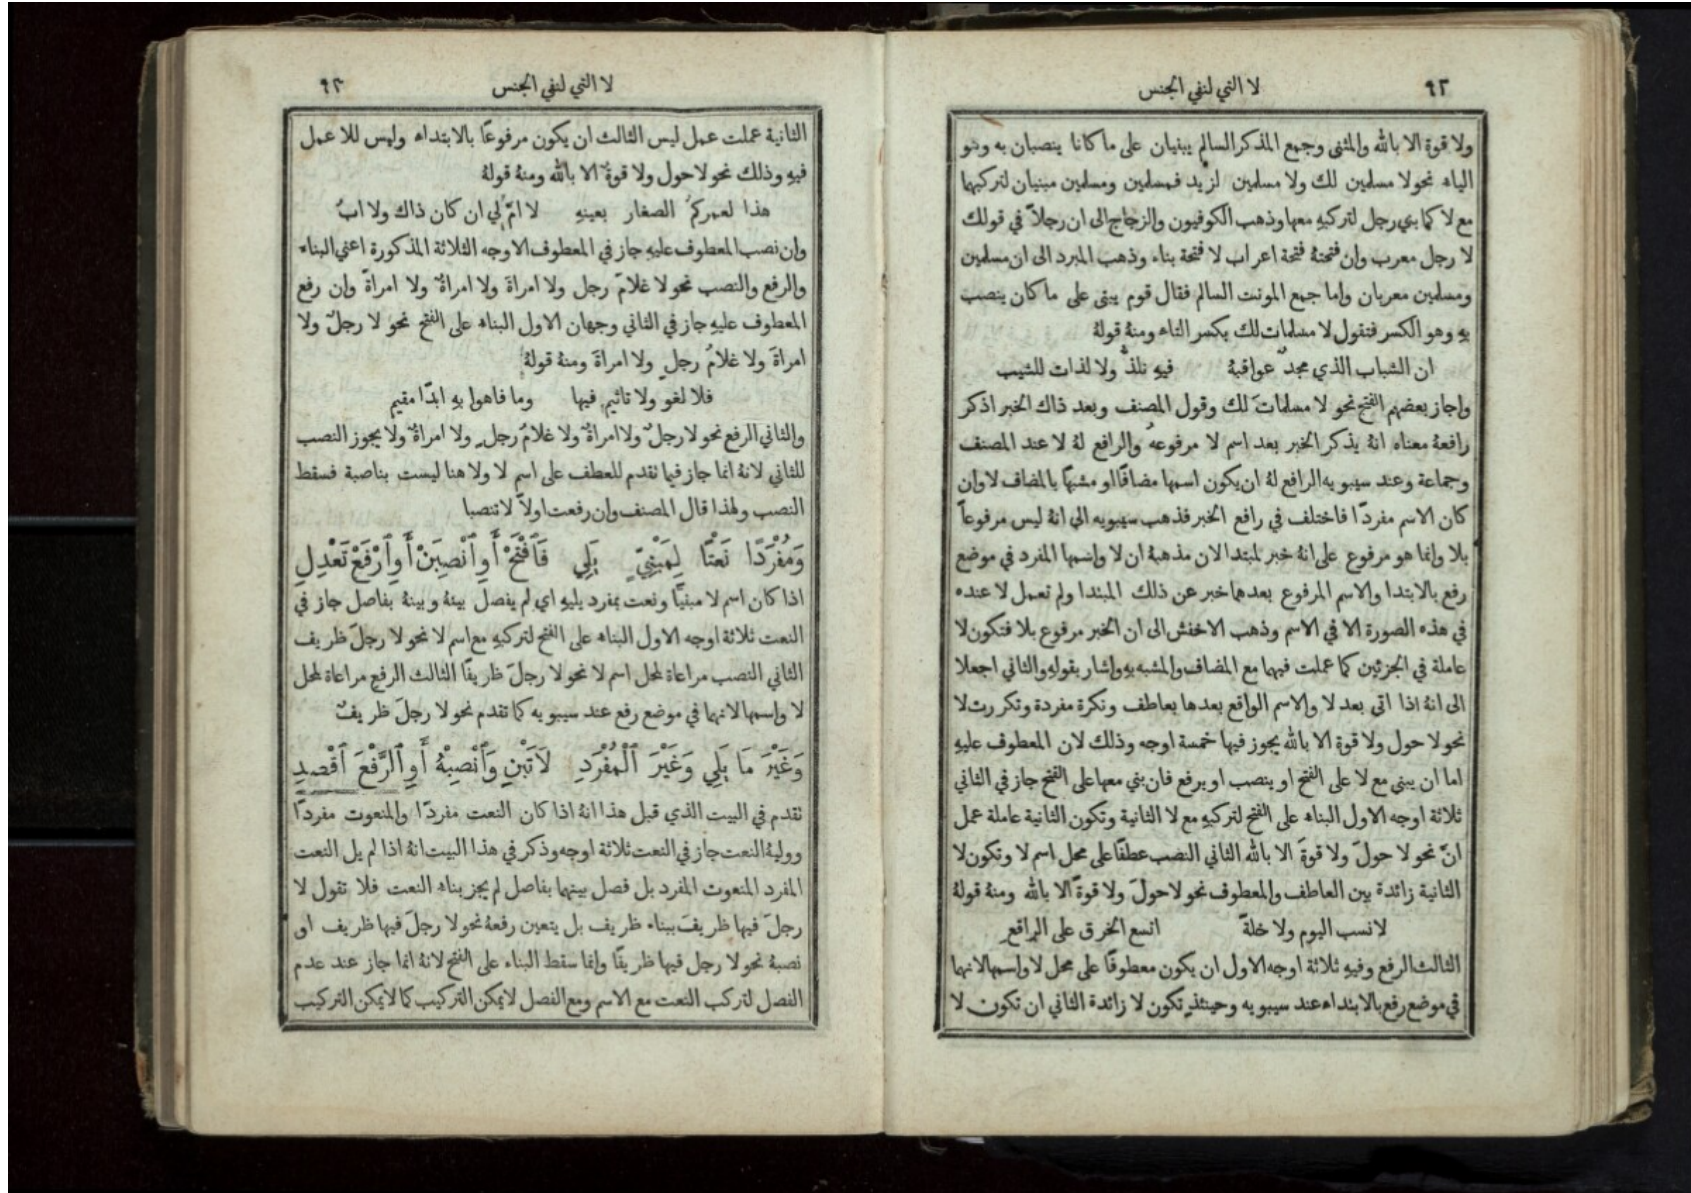 ٩٢
لا التي لنفي الجنس
ولا قوة الا بالله والمثنى وجمع المذكر السالم يبنيان على ما كانا ينصبان به وهو
الياء نحو لا مسلمين لك ولا مسلمين لزيد فمسلمين ومسلمين مبنيان لتركيبهما
مع لا كما بني رجل لتركيبه معها وذهب الكوفيون والزجاج الى ان رجلاً في قولك
لا رجل معرب وان فتحتهُ فتحة اعراب لا فتحة بناء وذهب المبرد الى ان مسلمين
ومسلمين معربان واما جمع المونث السالم فقال قوم يبنى على ما كان ينصب
بهِ وهو الكسر فتقول لا مسلمات لك بكسر التاء ومنهُ قولهُ
ان الشباب الذي مجدٌ عواقبهُ فيهِ نلذُّ ولا لذات للشيب
واجاز بعضهم الفتح نحو لا مسلماتَ لك وقول المصنف وبعد ذاك الخبر اذكر
رافعهُ معناه انهُ يذكر الخبر بعد اسم لا مرفوعه والرافع لهُ لا عند المصنف
وجماعة وعند سيبويه الرافع لهُ ان يكون اسمها مضافًا او مشبهًا بالمضاف لا وان
كان الاسم مفردًا فاختلف في رافع الخبر فذهب سيبويه الى انهُ ليس مرفوعاً
بلا وانما هو مرفوع على انهُ خبر لمبتدا لان مذهبهُ ان لا واسمها المفرد في موضع
رفع بالابتدا والاسم المرفوع بعدهما خبر عن ذلك المبتدا ولم تعمل لا عنده
في هذه الصورة الا في الاسم وذهب الاخفش الى ان الخبر مرفوع بلا فتكون لا
عاملة في الجزئين كما عملت فيهما مع المضاف والمشبه بهِ واشار بقولهِ والثاني اجعلا
الى انهُ اذا اتى بعد لا والاسم الواقع بعدها بعاطف ونكرة مفردة وتكررت لا
نحو لا حول ولا قوة الا بالله يجوز فيها خمسة اوجه وذلك لان المعطوف عليهِ
اما ان يبنى مع لا على الفتح او ينصب او يرفع فان بني معها على الفتح جاز في الثاني
ثلاثة اوجه الاول البناء على الفتح لتركبهِ مع لا الثانية وتكون الثانية عاملة عمل
انّ نحو لا حولَ ولا قوةَ الا بالله الثاني النصب عطفًا على محل اسم لا وتكون لا
الثانية زائدة بين العاطف والمعطوف نحو لا حولَ ولا قوةً الا بالله ومنهُ قولهُ
لا نسب اليوم ولا خلةً اتسع الخرق على الراقعِ
الثالث الرفع وفيهِ ثلاثة اوجه الاول ان يكون معطوفًا على محل لا واسمها لانهما
في موضع رفع بالابتداء عند سيبويه وحينئذٍ تكون لا زائدة الثاني ان تكون لا
لا التي لنفي الجنس
٩٣
الثانية عملت عمل ليس الثالث ان يكون مرفوعًا بالابتداء وليس للا عمل
فيهِ وذلك نحو لا حول ولا قوةٌ الا بالله ومنهُ قولهُ
هذا لعمركمُ الصغار بعينهِ لا امَّ لي ان كان ذاك ولا ابُ
وان نصب المعطوف عليهِ جاز في المعطوف الاوجه الثلاثة المذكورة اعني البناء
والرفع والنصب نحو لا غلامَ رجل ولا امراةَ ولا امراةٌ ولا امراةً وان رفع
المعطوف عليهِ جاز في الثاني وجهان الاول البناء على الفتح نحو لا رجلٌ ولا
امراةَ ولا غلامُ رجلٍ ولا امراةَ ومنهُ قولهُ
فلا لغو ولا تاثيم فيها وما فاهوا بهِ ابدًا مقيم
والثاني الرفع نحو لا رجلٌ ولا امراةٌ ولا غلامُ رجلٍ ولا امراةٌ ولا يجوز النصب
للثاني لانهُ انما جاز فيما تقدم للعطف على اسم لا ولا هنا ليست بناصبة فسقط
النصب ولهذا قال المصنف وان رفعت اولاً لا تنصبا
وَمُفْرَدًا نَعْتًا لِمَبْنِيٍّ يَلِي فَٱفْتَحْ أَوِ ٱنْصِبَنْ أَوِ ٱرْفَعْ تَعْدِلِ
اذا كان اسم لا مبنيًا ونعت بمفرد يليهِ اي لم يفصل بينهُ وبينهُ بفاصل جاز في
النعت ثلاثة اوجه الاول البناء على الفتح لتركبهِ مع اسم لا نحو لا رجلَ ظريف
الثاني النصب مراعاة لمحل اسم لا نحو لا رجلَ ظريفًا الثالث الرفع مراعاة لمحل
لا واسمها لانهما في موضع رفع عند سيبويه كما تقدم نحو لا رجلَ ظريفٌ
وَغَيْرَ مَا يَلِي وَغَيْرَ ٱلْمُفْرَدِ لَا تَبْنِ وَٱنْصِبْهُ أَوِ ٱلرَّفْعَ ٱقْصِدِ
تقدم في البيت الذي قبل هذا انهُ اذا كان النعت مفردًا والمنعوت مفردًا
ووليهُ النعت جاز في النعت ثلاثة اوجه وذكر في هذا البيت انهُ اذا لم يل النعت
المفرد المنعوت المفرد بل فصل بينهما بفاصل لم يجز بناء النعت فلا تقول لا
رجلَ فيها ظريفَ ببناء ظريف بل يتعين رفعهُ نحو لا رجلَ فيها ظريف او
نصبهُ نحو لا رجل فيها ظريفًا وانما سقط البناء على الفتح لانهُ انما جاز عند عدم
الفصل لتركب النعت مع الاسم ومع الفصل لا يمكن التركيب كما لا يمكن التركيب